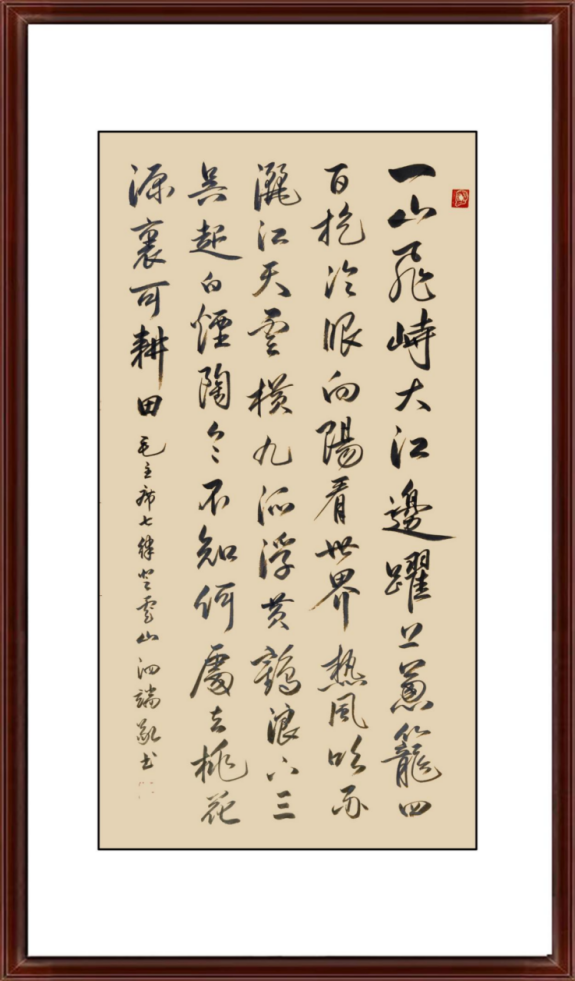 一山飛峙大江邊躍上蔥籠四
百旋冷眼向陽看世界熱風吹雨
灑江天雲橫九派浮黃鶴浪下三
吳起白煙陶令不知何處去桃花
源裏可耕田 毛主席七律登山泗端敬书